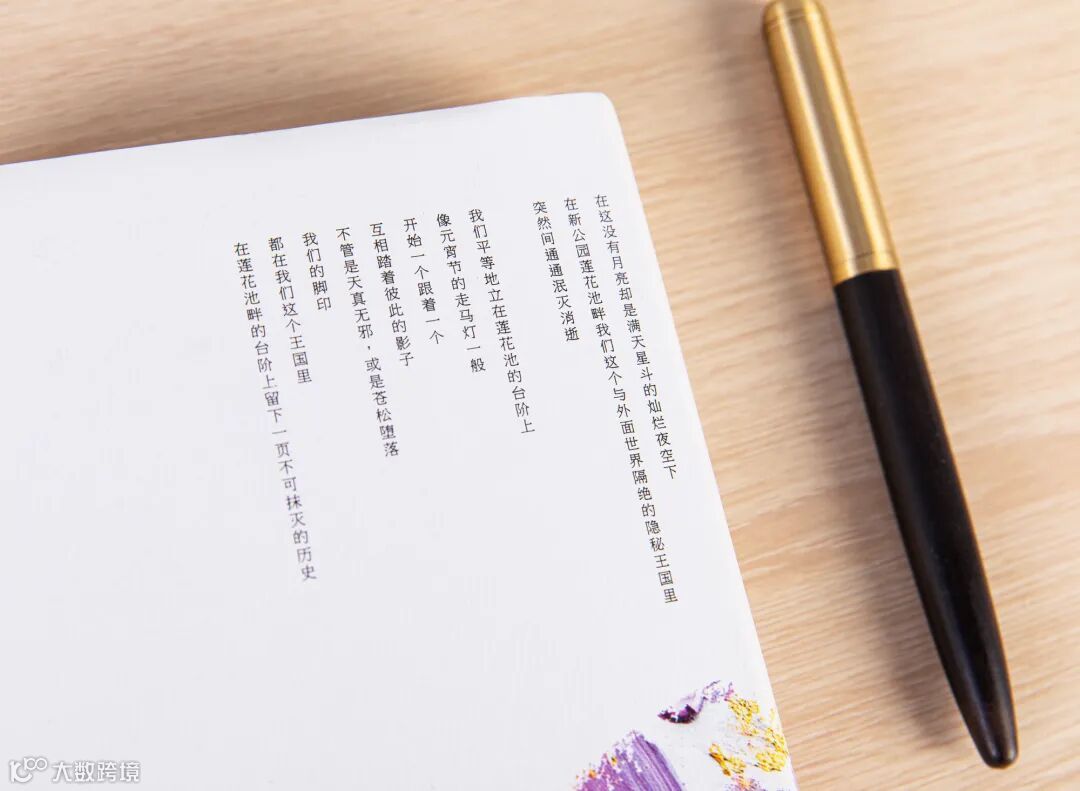 在这没有月亮却是满天星斗的灿烂夜空下
在新公园莲花池畔我们这个与外面世界隔绝的隐秘王国里
突然间通通泯灭消逝
我们平等地立在莲花池的台阶上
像元宵节的走马灯一般
开始一个跟着一个
互相踏着彼此的影子
不管是天真无邪，或是苍松堕落
我们的脚印
都在我们这个王国里
在莲花池畔的台阶上留下一页不可抹灭的历史
大数跨境